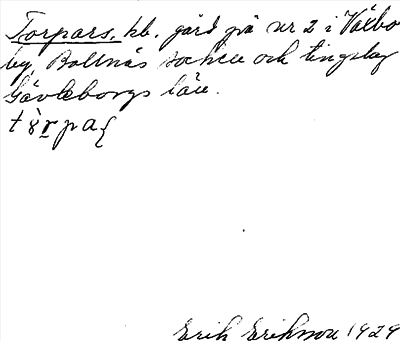 Torpars, hb. gård på nr 2 i Växbo
by, Bollnäs socken och tingslag
Gävleborgs län.
Erik Eriksson 1929